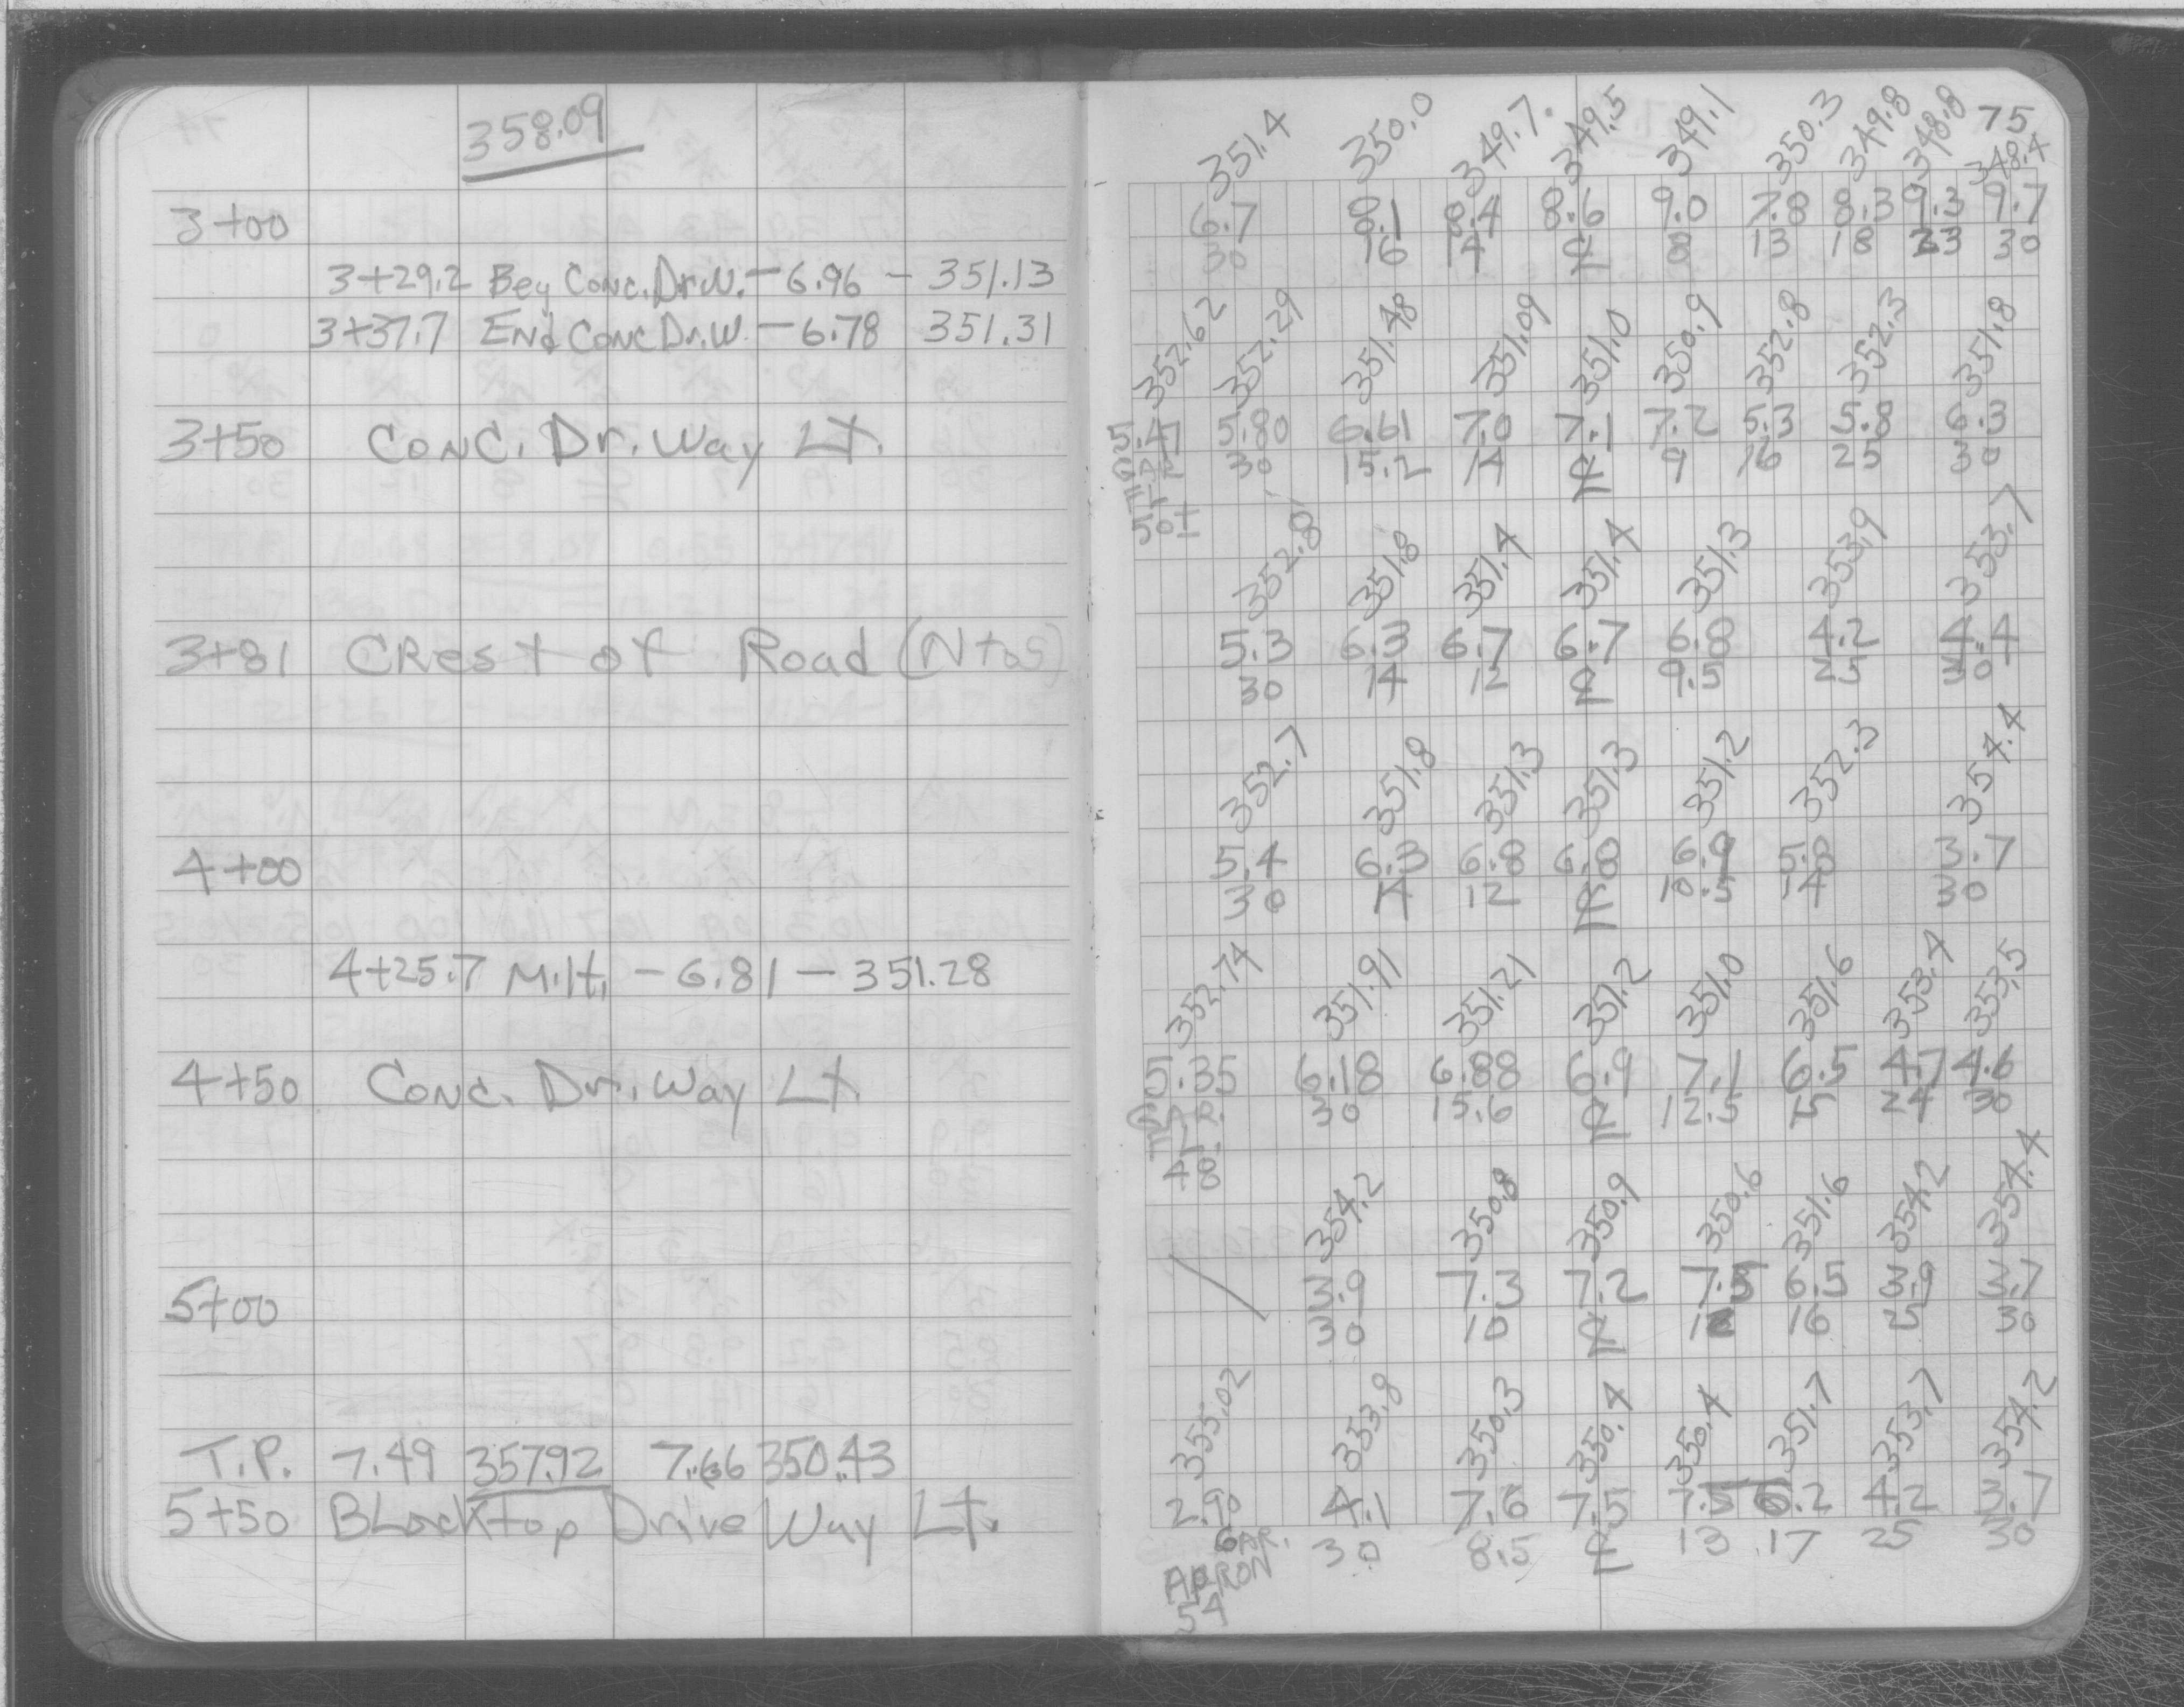 358.09
3+00
3+29.2 Beg Conc. Dr.W. - 6.96 - 351.13
3+37.7 End Conc Dr.W. - 6.78 351.31
3+50 Conc. Dr. Way Lt.
3+81 Crest of Road (N to S)
4+00
4+25.7 M.H. - 6.81 - 351.28
4+50 Conc. Dr. Way Lt.
5+00
T.P. 7.49 357.92 7.66 350.43
5+50 Blacktop Drive Way Lt.
75
351.4 350.0 349.7 349.5 349.1 350.3 349.8 348.8 348.4
6.7 8.1 8.4 8.6 9.0 7.8 8.3 9.3 9.7
30 16 14 ℄ 8 13 18 23 30
352.62 352.29 351.48 351.09 351.0 350.9 352.8 352.3 351.8
5.47 5.80 6.61 7.0 7.1 7.2 5.3 5.8 6.3
30 15.2 14 ℄ 9 16 25 30
50±
352.8 351.8 351.4 351.4 351.3 353.9 353.7
5.3 6.3 6.7 6.7 6.8 4.2 4.4
30 14 12 ℄ 9.5 25 30
352.7 351.8 351.3 351.3 351.2 352.3 354.4
5.4 6.3 6.8 6.8 6.9 5.8 3.7
30 14 12 ℄ 10.5 14 30
352.74 351.91 351.21 351.2 351.0 351.6 353.4 353.5
5.35 6.18 6.88 6.9 7.1 6.5 4.7 4.6
30 15.6 ℄ 12.5 15 24 30
48
354.2 350.8 350.9 350.6 351.6 354.2 354.4
3.9 7.3 7.2 7.5 6.5 3.9 3.7
30 10 ℄ 12 16 25 30
355.02 353.8 350.3 350.4 350.4 351.7 353.7 354.2
2.90 4.1 7.6 7.5 7.5 6.2 4.2 3.7
GAR. 30 8.5 ℄ 13 17 25 30
APRON
54